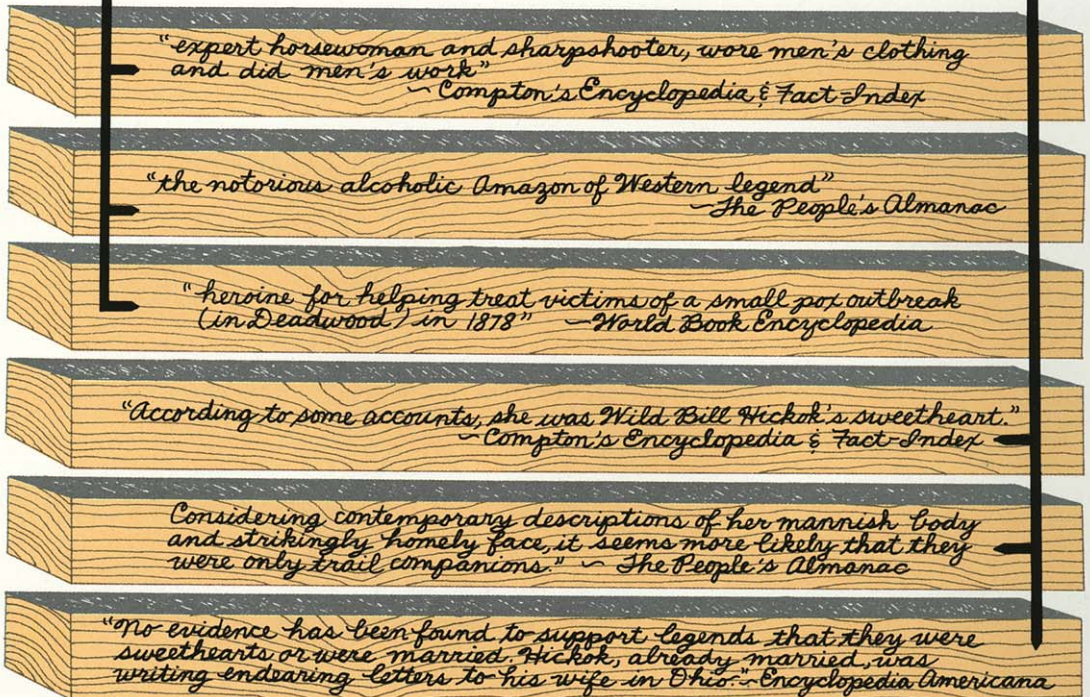 "expert horsewoman and sharpshooter, wore men's clothing
and did men's work"
~ Compton's Encyclopedia & Fact-Index
"the notorious alcoholic Amazon of Western legend"
~The People's Almanac
"heroine for helping treat victims of a small pox outbreak
(in Deadwood) in 1878" ~World Book Encyclopedia
"According to some accounts, she was Wild Bill Hickok's sweetheart."
~Compton's Encyclopedia & Fact-Index
Considering contemporary descriptions of her mannish body
and strikingly homely face, it seems more likely that they
were only trail companions." ~ The People's Almanac
"No evidence has been found to support legends that they were
sweethearts or were married. Hickok, already married, was
writing endearing letters to his wife in Ohio."~Encyclopedia Americana